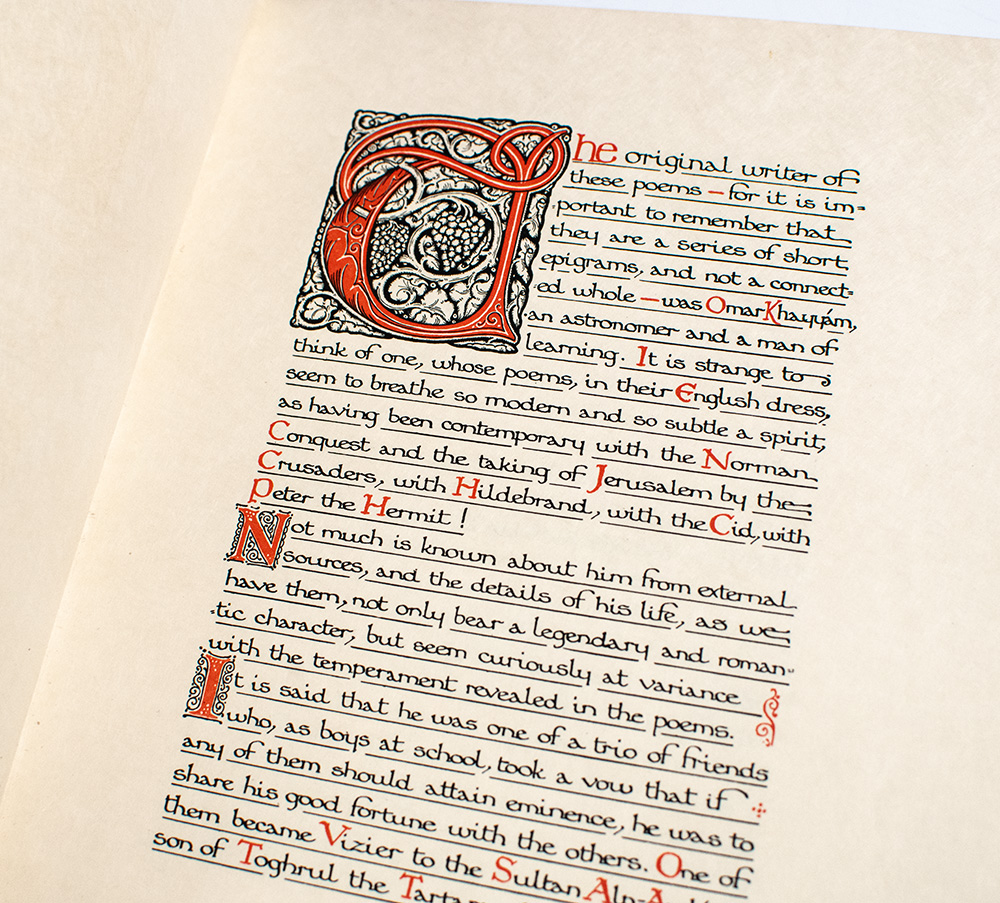 The original writer of
these poems — for it is im-
portant to remember that
they are a series of short
epigrams, and not a connect-
ed whole — was Omar Khayyám,
an astronomer and a man of
learning. It is strange to
think of one, whose poems, in their English dress,
seem to breathe so modern and so subtle a spirit,
as having been contemporary with the Norman
Conquest and the taking of Jerusalem by the
Crusaders, with Hildebrand, with the Cid, with
Peter the Hermit !
Not much is known about him from external
sources, and the details of his life, as we
have them, not only bear a legendary and roman-
tic character, but seem curiously at variance
with the temperament revealed in the poems.
It is said that he was one of a trio of friends
who, as boys at school, took a vow that if
any of them should attain eminence, he was to
share his good fortune with the others. One of
them became Vizier to the Sultan
son of Toghrul the